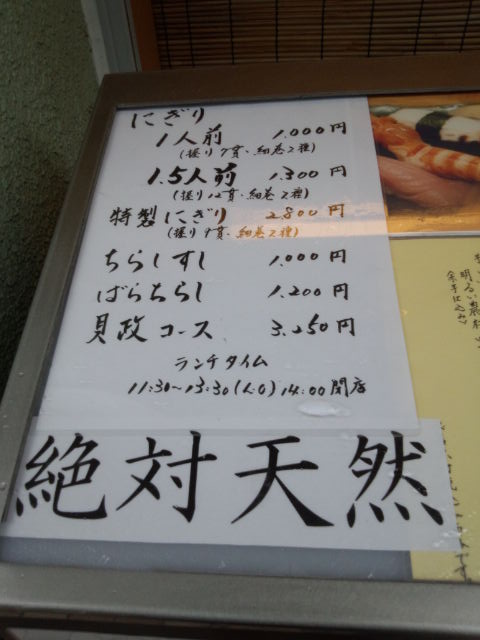 にぎり
1人前 1.000円
(握り7貫、細巻2種)
1.5人前 1.300円
(握り12貫、細巻2種)
特製にぎり 2.800円
(握り9貫、細巻2種)
ちらしすし 1.000円
ばらちらし 1.200円
貝政コース 3.250円
ランチタイム
11:30〜13:30(L.O) 14:00閉店
絶対天然
明るい農村